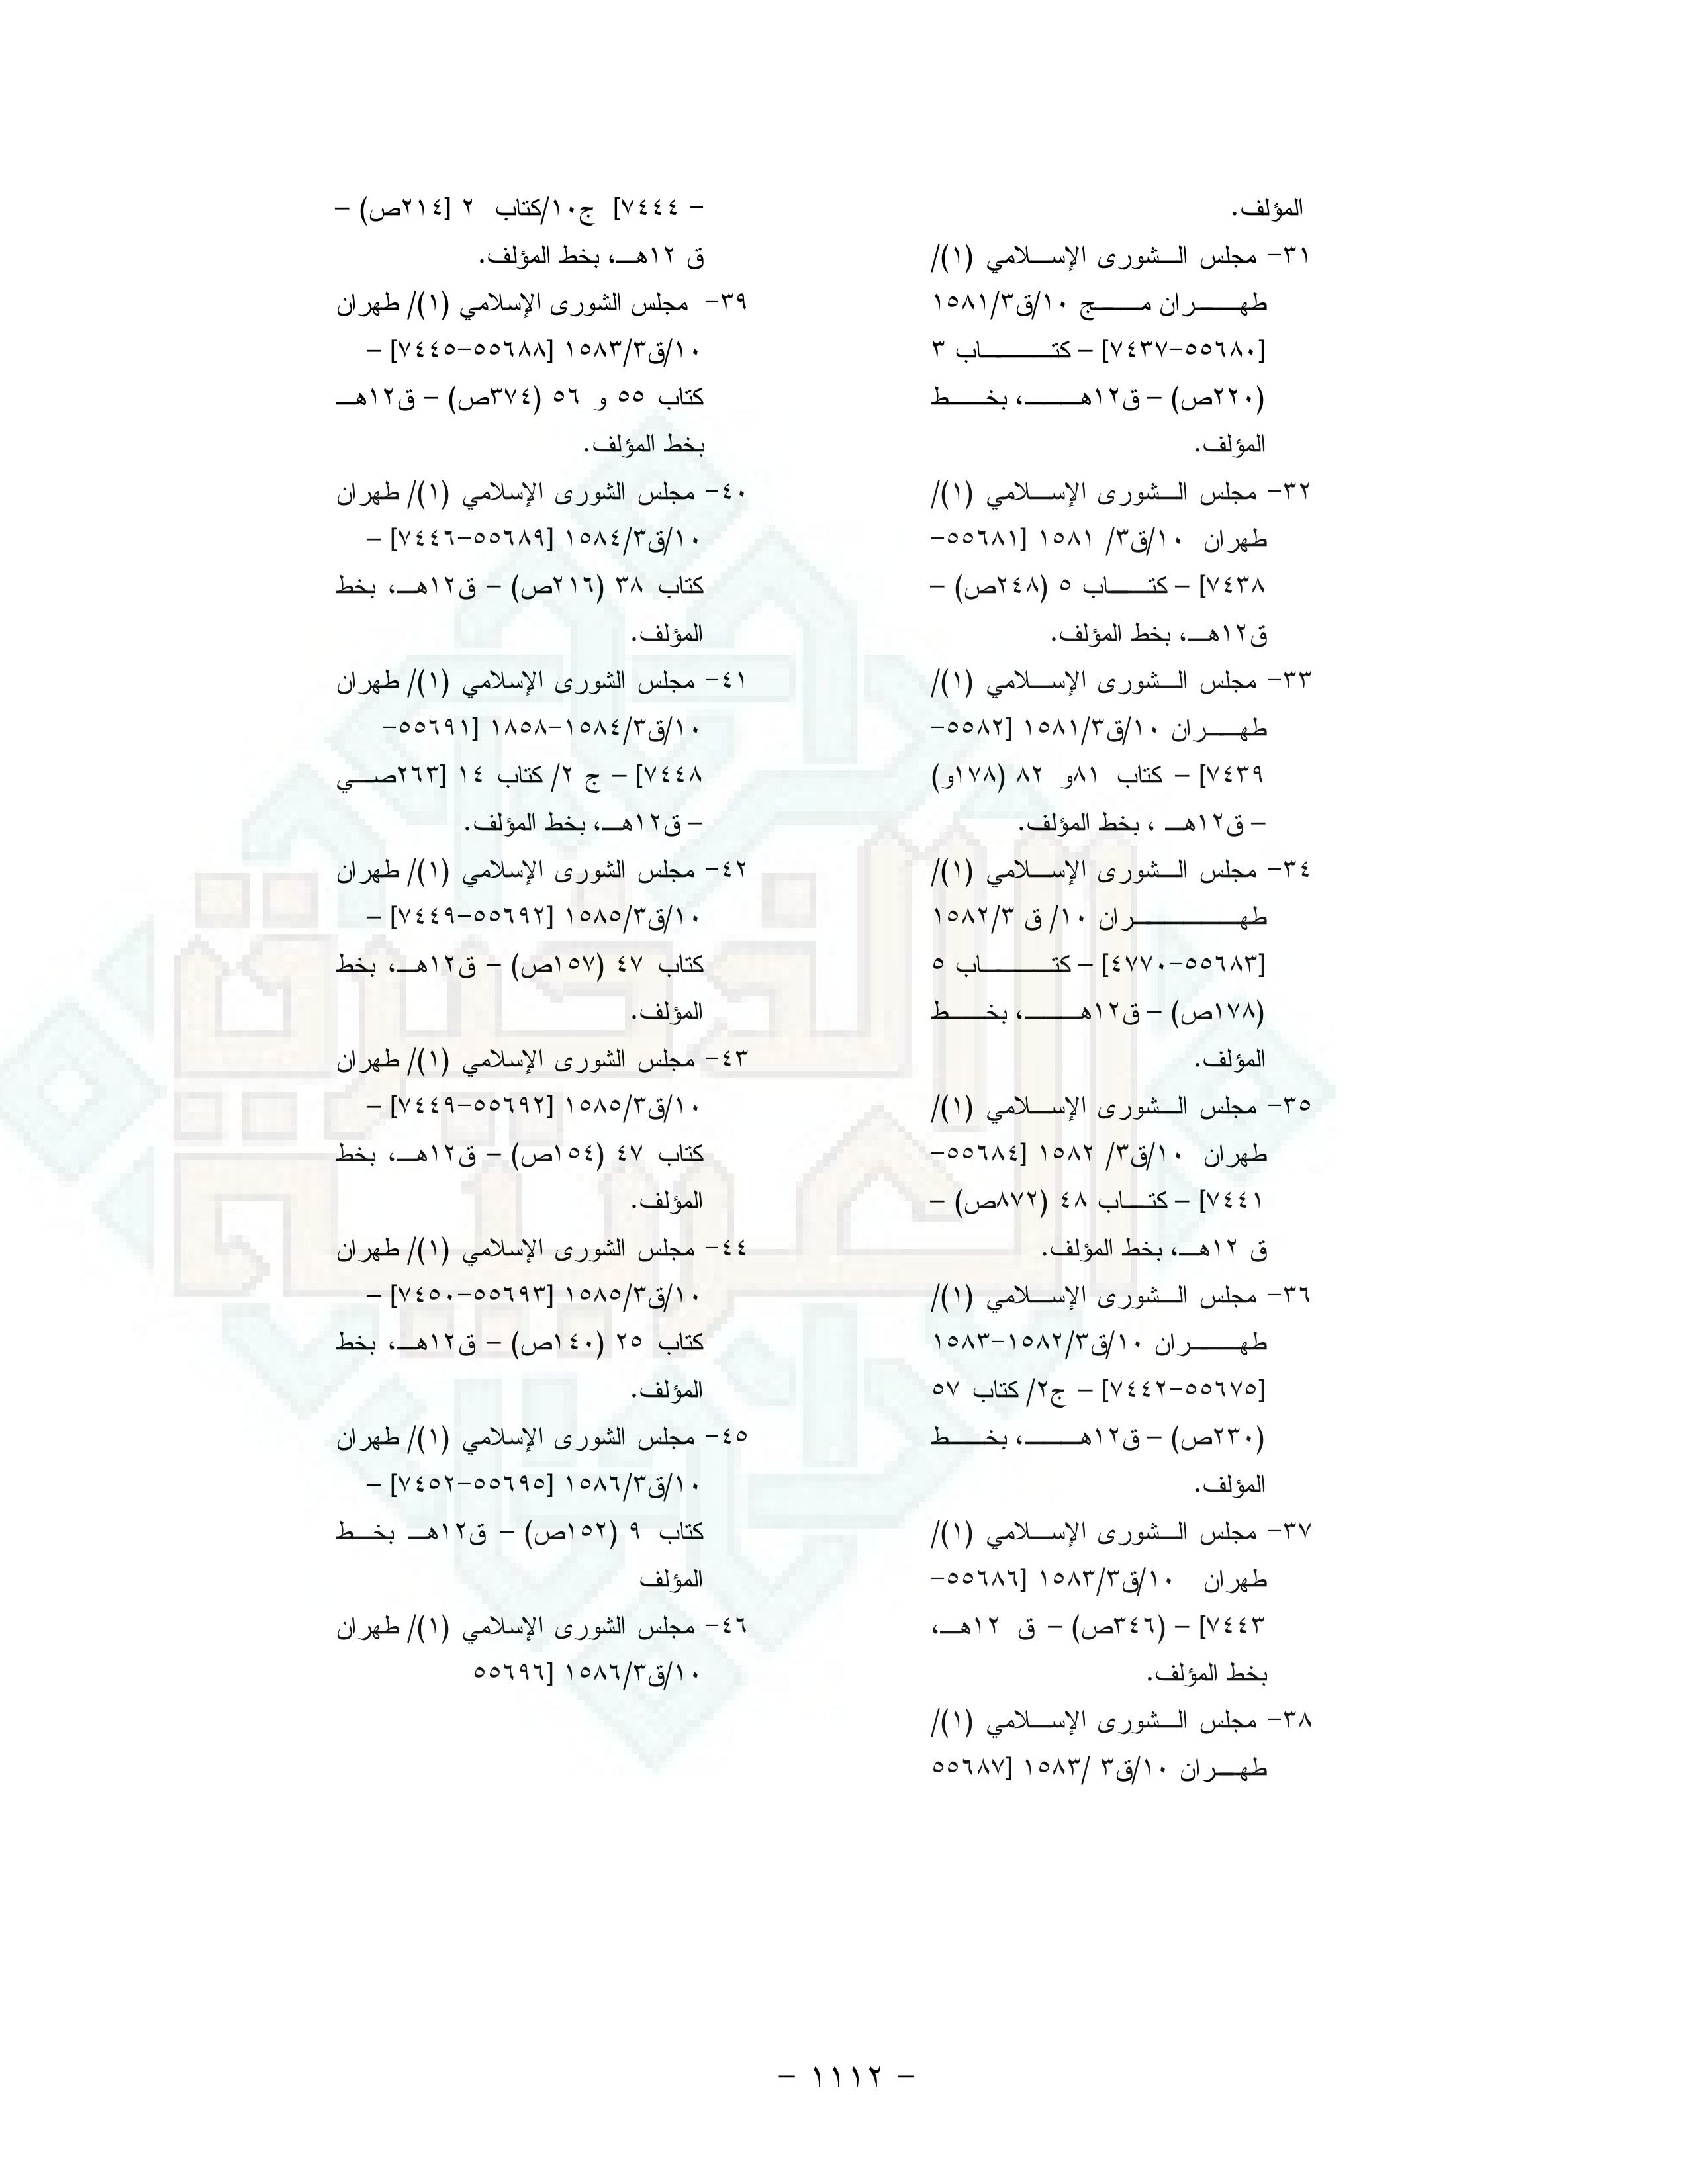 المؤلف.
٣١- مجلس الـشورى الإسـلامي (١)/
طهـران مـج ١٠/ق٣/١٥٨١
[٥٥٦٨٠-٧٤٣٧] – كتـاب ٣
(٢٢٠ص) – ق١٢هـ، بخـط
المؤلف.
٣٢- مجلس الـشورى الإسـلامي (١)/
طهران ١٠/ق٣/ ١٥٨١ [٥٥٦٨١-
٧٤٣٨] – كتـاب ٥ (٢٤٨ص) –
ق١٢هـ، بخط المؤلف.
٣٣- مجلس الـشورى الإسـلامي (١)/
طهـران ١٠/ق٣/١٥٨١ [٥٥٨٢-
٧٤٣٩] – كتاب ٨١و ٨٢ (١٧٨و)
– ق١٢هـ ، بخط المؤلف.
٣٤- مجلس الـشورى الإسـلامي (١)/
طهـران ١٠/ ق ٣/١٥٨٢
[٥٥٦٨٣-٤٧٧٠] – كتـاب ٥
(١٧٨ص) – ق١٢هـ، بخـط
المؤلف.
٣٥- مجلس الـشورى الإسـلامي (١)/
طهران ١٠/ق٣/ ١٥٨٢ [٥٥٦٨٤-
٧٤٤١] – كتـاب ٤٨ (٨٧٢ص) –
ق ١٢هـ، بخط المؤلف.
٣٦- مجلس الـشورى الإسـلامي (١)/
طهـران ١٠/ق٣/١٥٨٢-١٥٨٣
[٥٥٦٧٥-٧٤٤٢] – ج٢/ كتاب ٥٧
(٢٣٠ص) – ق١٢هـ، بخـط
المؤلف.
٣٧- مجلس الـشورى الإسـلامي (١)/
طهران ١٠/ق٣/١٥٨٣ [٥٥٦٨٦-
٧٤٤٣] – (٣٤٦ص) – ق ١٢هـ،
بخط المؤلف.
٣٨- مجلس الـشورى الإسـلامي (١)/
طهـران ١٠/ق٣ /١٥٨٣ [٥٥٦٨٧
- ٧٤٤٤] ج١٠/كتاب ٢ [٢١٤ص) –
ق ١٢هـ، بخط المؤلف.
٣٩- مجلس الشورى الإسلامي (١)/ طهران
١٠/ق٣/١٥٨٣ [٥٥٦٨٨-٧٤٤٥] –
كتاب ٥٥ و ٥٦ (٣٧٤ص) – ق١٢هـ
بخط المؤلف.
٤٠- مجلس الشورى الإسلامي (١)/ طهران
١٠/ق٣/١٥٨٤ [٥٥٦٨٩-٧٤٤٦] –
كتاب ٣٨ (٢١٦ص) – ق١٢هـ، بخط
المؤلف.
٤١- مجلس الشورى الإسلامي (١)/ طهران
١٠/ق٣/١٥٨٤-١٨٥٨ [٥٥٦٩١-
٧٤٤٨] – ج ٢/ كتاب ١٤ [٢٦٣صـي
– ق١٢هـ، بخط المؤلف.
٤٢- مجلس الشورى الإسلامي (١)/ طهران
١٠/ق٣/١٥٨٥ [٥٥٦٩٢-٧٤٤٩] –
كتاب ٤٧ (١٥٧ص) – ق١٢هـ، بخط
المؤلف.
٤٣- مجلس الشورى الإسلامي (١)/ طهران
١٠/ق٣/١٥٨٥ [٥٥٦٩٢-٧٤٤٩] –
كتاب ٤٧ (١٥٤ص) – ق١٢هـ، بخط
المؤلف.
٤٤- مجلس الشورى الإسلامي (١)/ طهران
١٠/ق٣/١٥٨٥ [٥٥٦٩٣-٧٤٥٠] –
كتاب ٢٥ (١٤٠ص) – ق١٢هـ، بخط
المؤلف.
٤٥- مجلس الشورى الإسلامي (١)/ طهران
١٠/ق٣/١٥٨٦ [٥٥٦٩٥-٧٤٥٢] –
كتاب ٩ (١٥٢ص) – ق١٢هـ بخـط
المؤلف
٤٦- مجلس الشورى الإسلامي (١)/ طهران
١٠/ق٣/١٥٨٦ [٥٥٦٩٦
الذخيرة
العربية
- ١١١٢ -